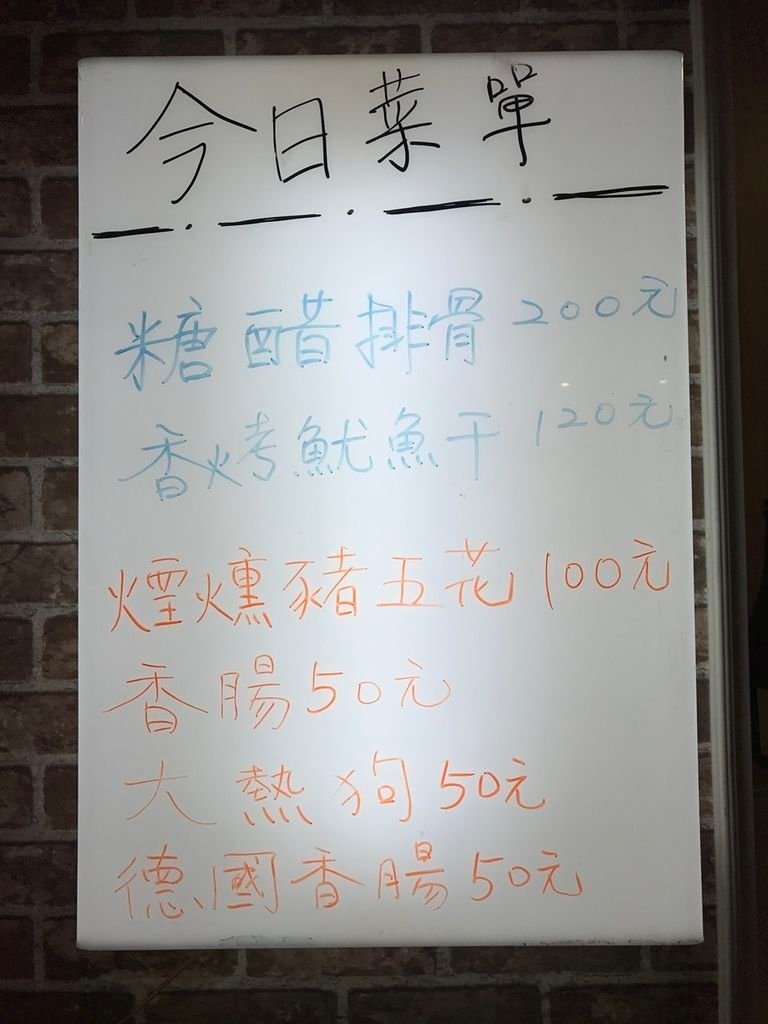 今日菜單
糖醋排骨200元
香烤魷魚干120元
煙燻豬五花100元
香腸50元
大熱狗50元
德國香腸50元